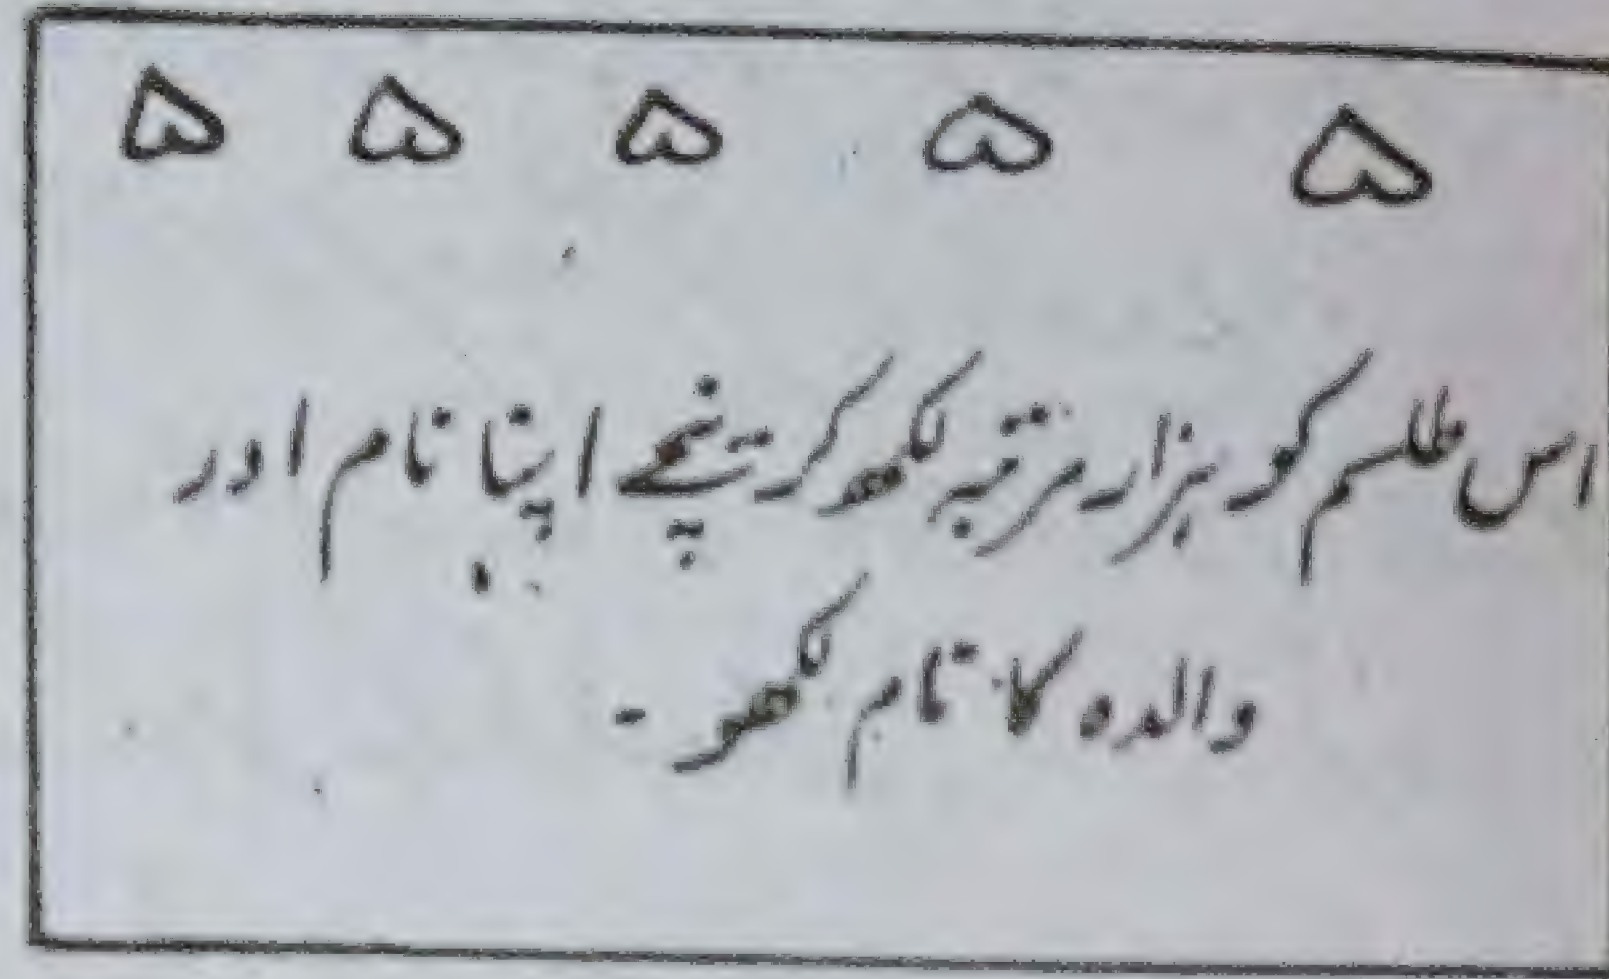 ۵ ۵ ۵ ۵ ۵
اس طلسم کو ہزار مرتبہ لکھ کر نیچے اپنا نام اور
والدہ کا نام لکھو۔